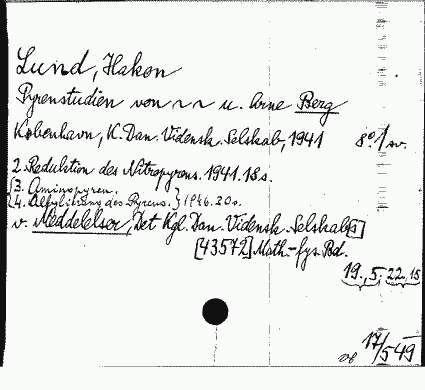 Lund, Hakon
Pyrenstudien von ~ ~ u. Arne Berg
København, K. Dan. Vidensk. Selskab, 1941 8° 1 sv.
2. Reduktion des Nitropyrens. 1941. 18 s.
[3. Aminopyren.
[4. Alkylierung des Pyrens. } 1946. 20 s.
v. Meddelelser, Det Kgl. Dan. Vidensk. Selskab[s]
[43572] Math.-fys. Bd.
19., 5. 22., 15
17/549